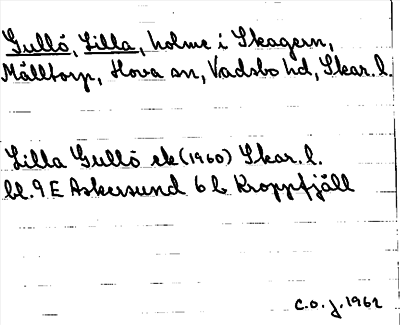 Gullö, Lilla, holme i Skagern,
Målltorp, Hova sn, Vadsbo hd, Skar. l.
Lilla Gullö ek (1960) Skar. l.
bl. 9 E Askersund 6 b Kroppfjäll
C.O.J. 1962